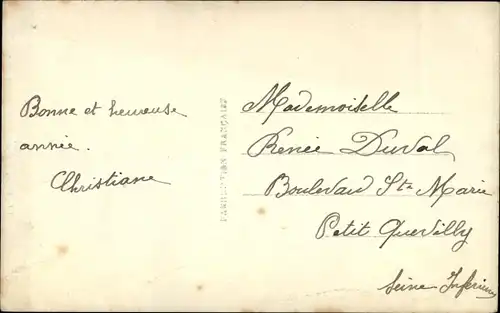 Bonne et heureuse
année.
Christiane
FABRICATION FRANÇAISE
Mademoiselle
Renée Duval
Boulevard Ste Marie
Petit Quevilly
Seine Inférieure